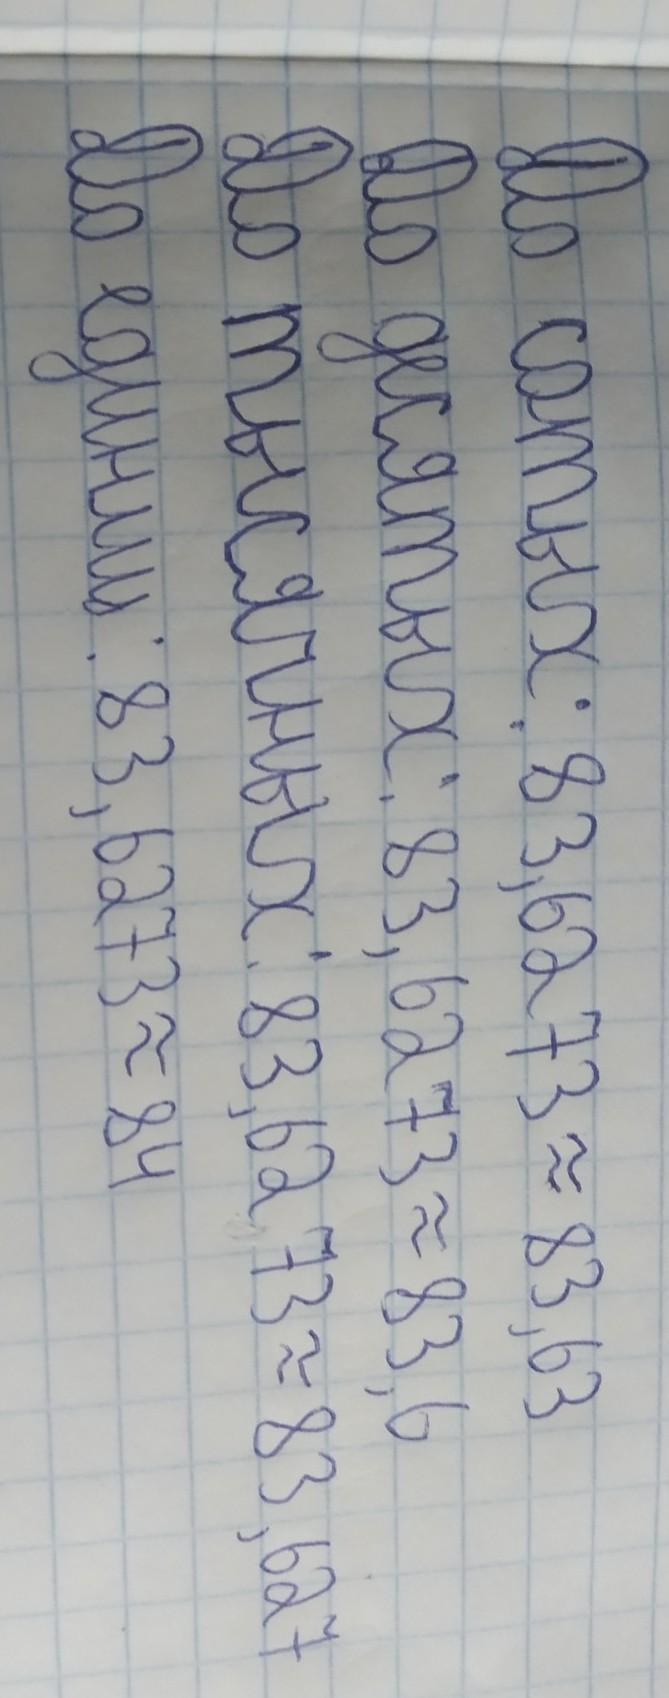 До сотых: 83,6273≈83,63
До десятых: 83,6273≈83,6
До тысячных: 83,6273≈83,627
До единиц: 83,6273≈84